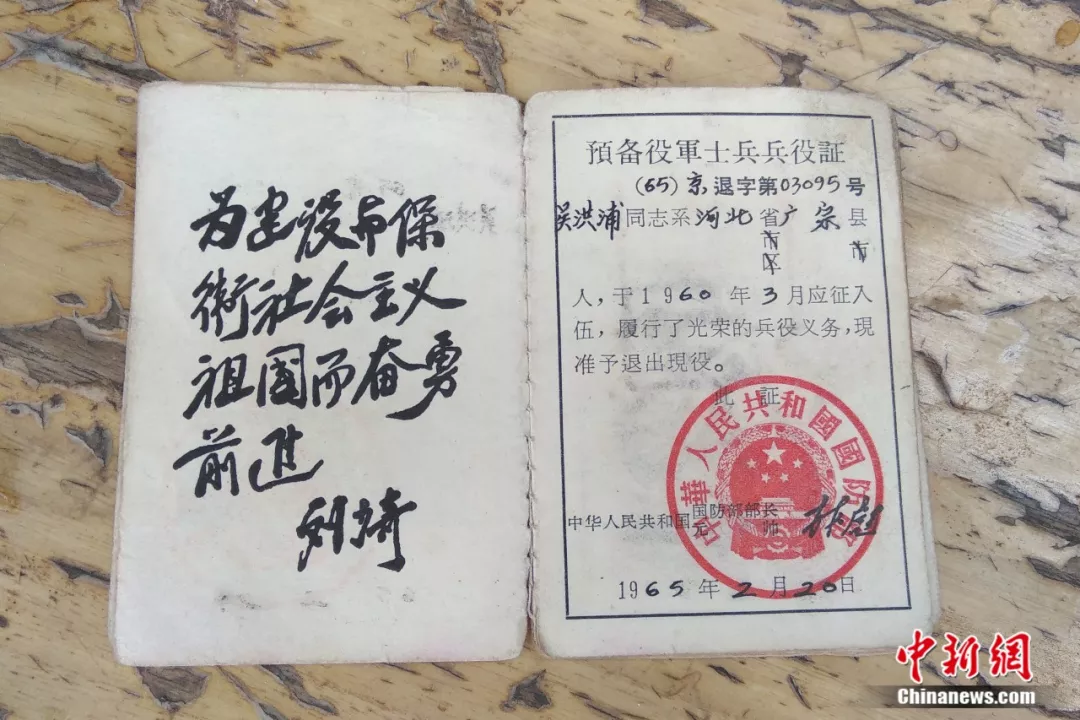 为建设与保
衛社会主义
祖國而奋勇
前進
預备役軍士兵兵役証
(65)京退字第03095号
吴洪浦同志系河北省广宗县
市 市
区
人,于1960年3月应征入
伍,履行了光荣的兵役义务,現
准予退出現役。
此証
中华人民共和国国防部部长
元帅 林彪
中華人民共和國國防部
1965年2月20日
中新网
Chinanews.com